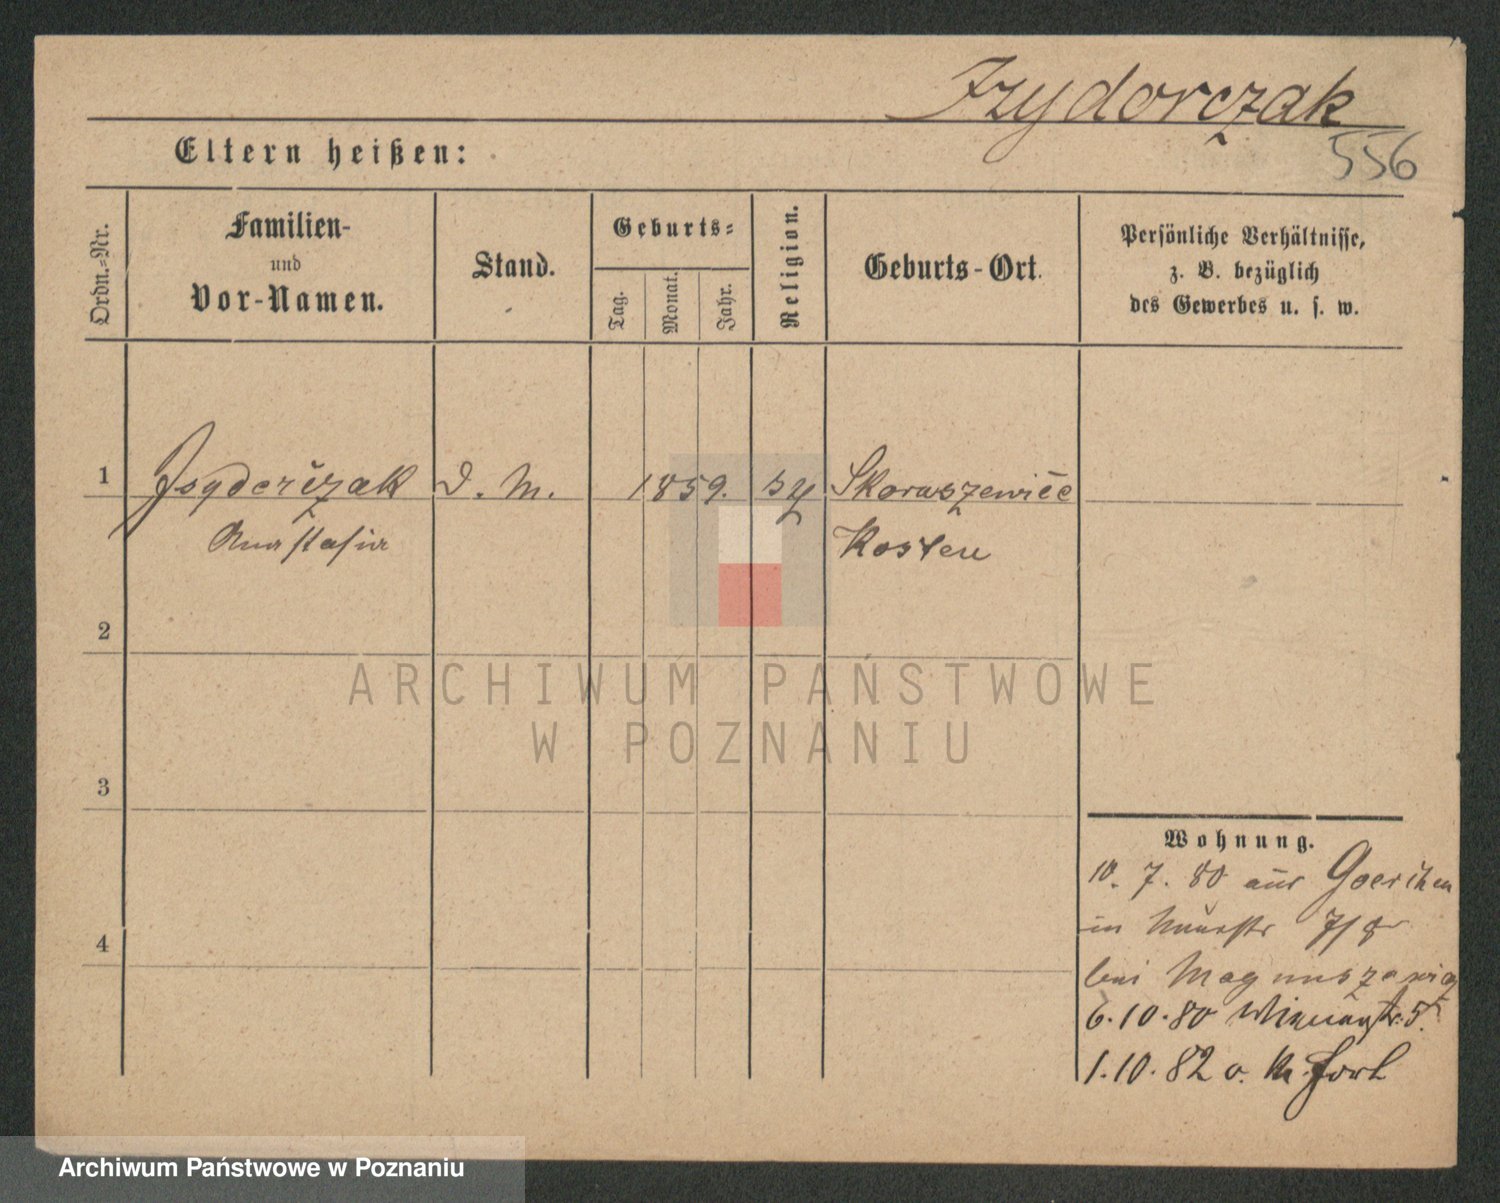 Izydorczak
556
Eltern heißen:
Ordn.-Nr.
Familien-
und
Vor-Namen.
Stand.
Geburts-
Tag.
Monat.
Jahr.
Religion.
Geburts-Ort.
Persönliche Verhältnisse,
z. B. bezüglich
des Gewerbes u. s. w.
1 D. M. 1859.
Anastasia Kosten
2
3
4
Wohnung.
10. 7. 80 aus Goerchen
in 7/8
bei
6. 10. 80 5.
1. 10. 82 o. M. fort
ARCHIWUM PAŃSTWOWE
W POZNANIU
Archiwum Państwowe w Poznaniu